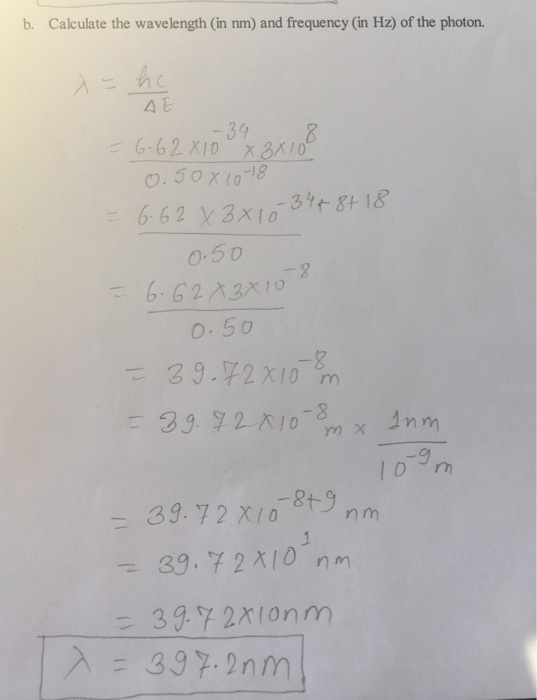 b. Calculate the wavelength (in nm) and frequency (in Hz) of the photon.
λ = hc / ΔE
= 6.62 × 10^-34 × 3×10^8 / 0.50 × 10^-18
= 6.62 × 3×10^-34+8+18 / 0.50
= 6.62 × 3×10^-8 / 0.50
= 39.72 × 10^-8 m
= 39.72 × 10^-8 m × 1nm / 10^-9 m
= 39.72 × 10^-8+9 nm
= 39.72 × 10^1 nm
= 39.72 × 10nm
λ = 397.2nm